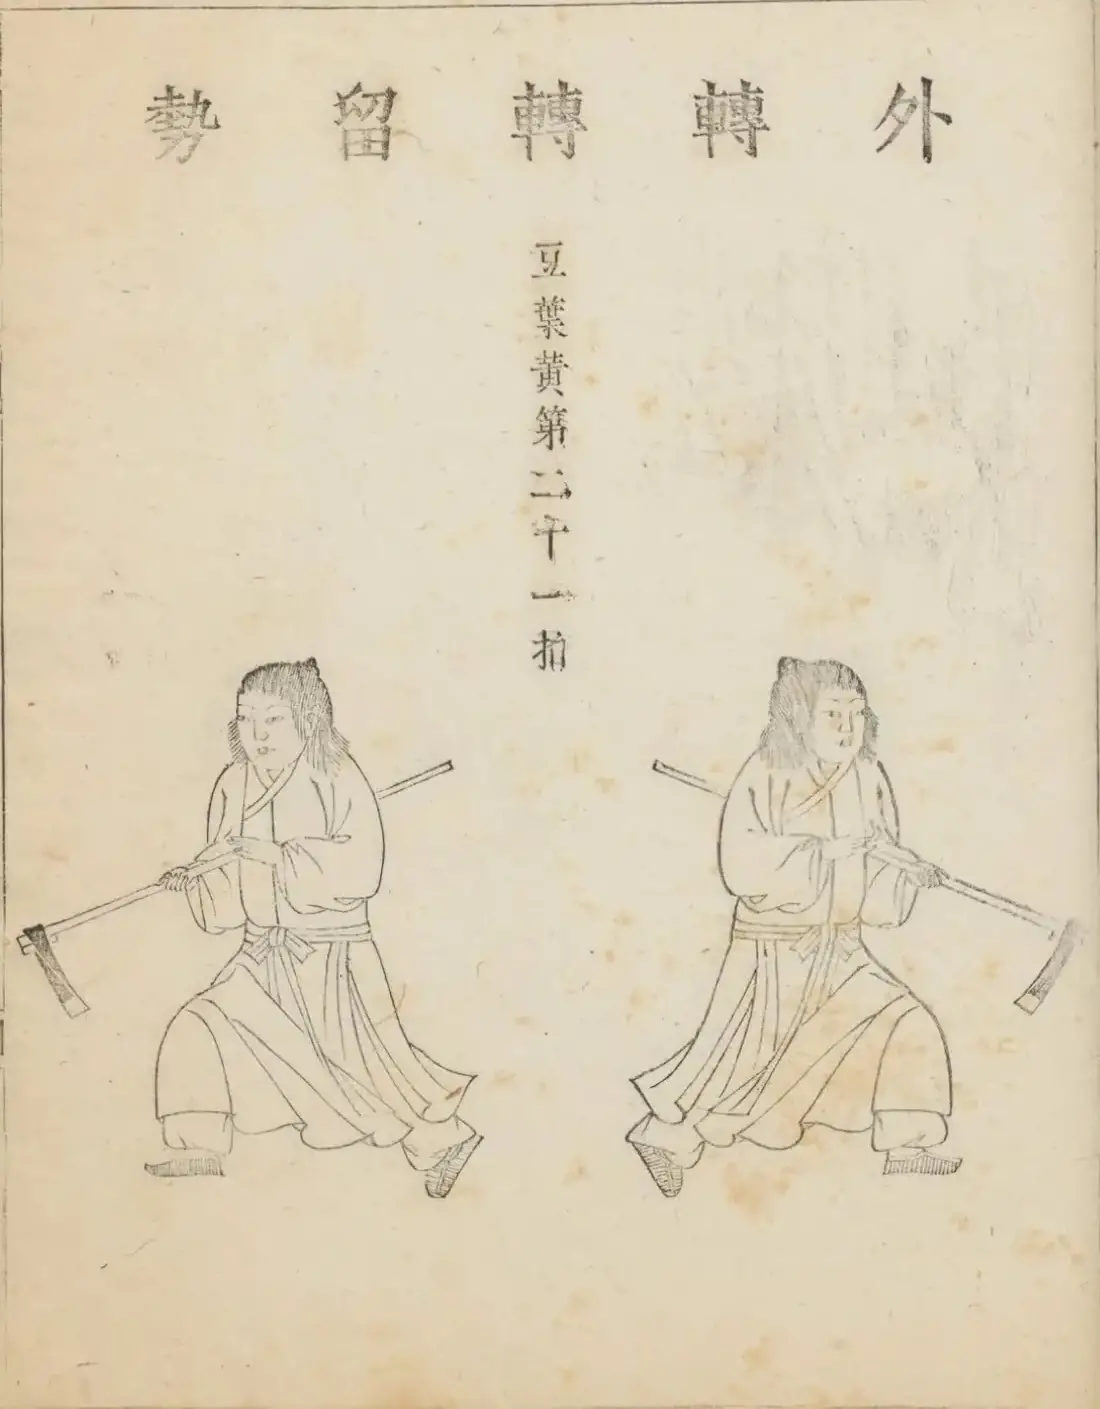 外轉轉留勢
豆葉黄第二十一拍